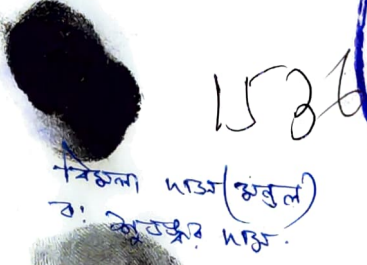 1536
বিমলা দাস (মন্ডল)
ব: শুভঙ্কর দাস.